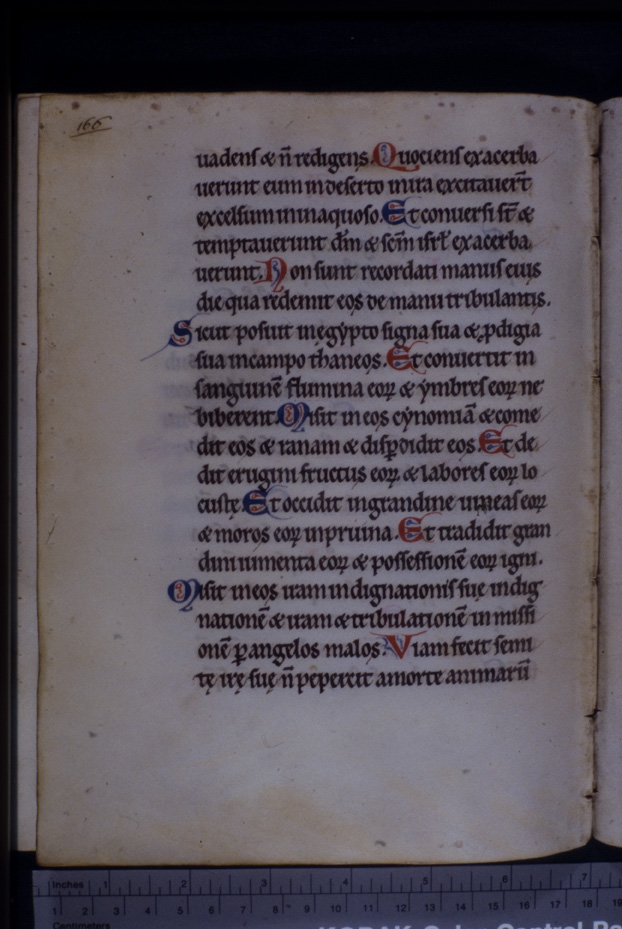 166
uadens & n̄ redigens. Quociens exacerba
uerunt eum in deserto in ira excitauer̄t
excelsum in inaquoso. Et conuersi st̄ &
temptauerunt dm̄ & sc̄m isrl̄ exacerba
uerunt. Non sunt recordati manus eius
die qua redemit eos de manu tribulantis.
Sicut posuit in egẏpto signa sua & ꝓdigia
sua in campo thaneos. Et conuertit in
sanguinē flumina eoꝝ & ẏmbres eoꝝ ne
biberent. Misit in eos cẏnomiā & come
dit eos & ranam & disꝑdidit eos. Et de
dit erugini fructus eoꝝ & labores eoꝝ lo
custę. Et occidit in grandine uineas eoꝝ
& moros eoꝝ in pruina. Et tradidit gran
dini iumenta eoꝝ & possessionē eoꝝ igni.
Misit in eos iram indignationis suę indig
nationē & iram & tribulationē inmissi
onē ꝑ angelos malos. Viam fecit semi
tę irę suę n̄ pepercit a morte animarū
Inches 1 2 3 4 5 6 7
1 2 3 4 5 6 7 8 9 10 11 12 13 14 15 16 17 18 19
Centimeters
KODAK Color Control Pa